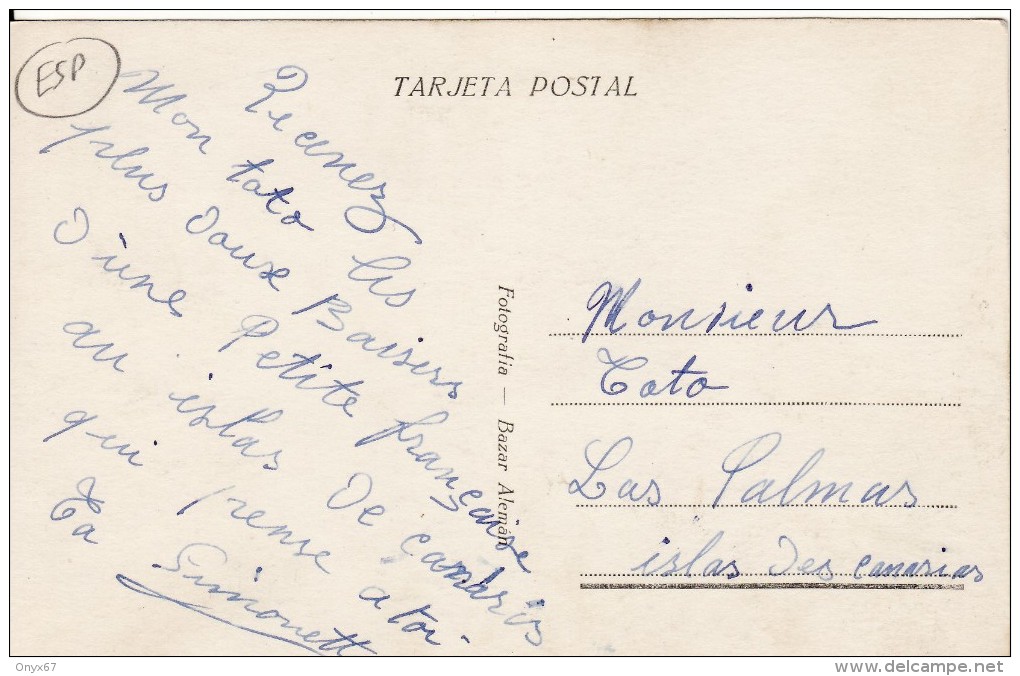 ESP
TARJETA POSTAL
Recevez
Mon toto lis
plus doux Baisers
d'une Petite française
au islas de canarias
qui pense a toi.
Ta Simonett
Fotografia — Bazar Alemán
Monsieur
Toto
Las Palmas
islas des canarias
Onyx67
www.delcampe.net